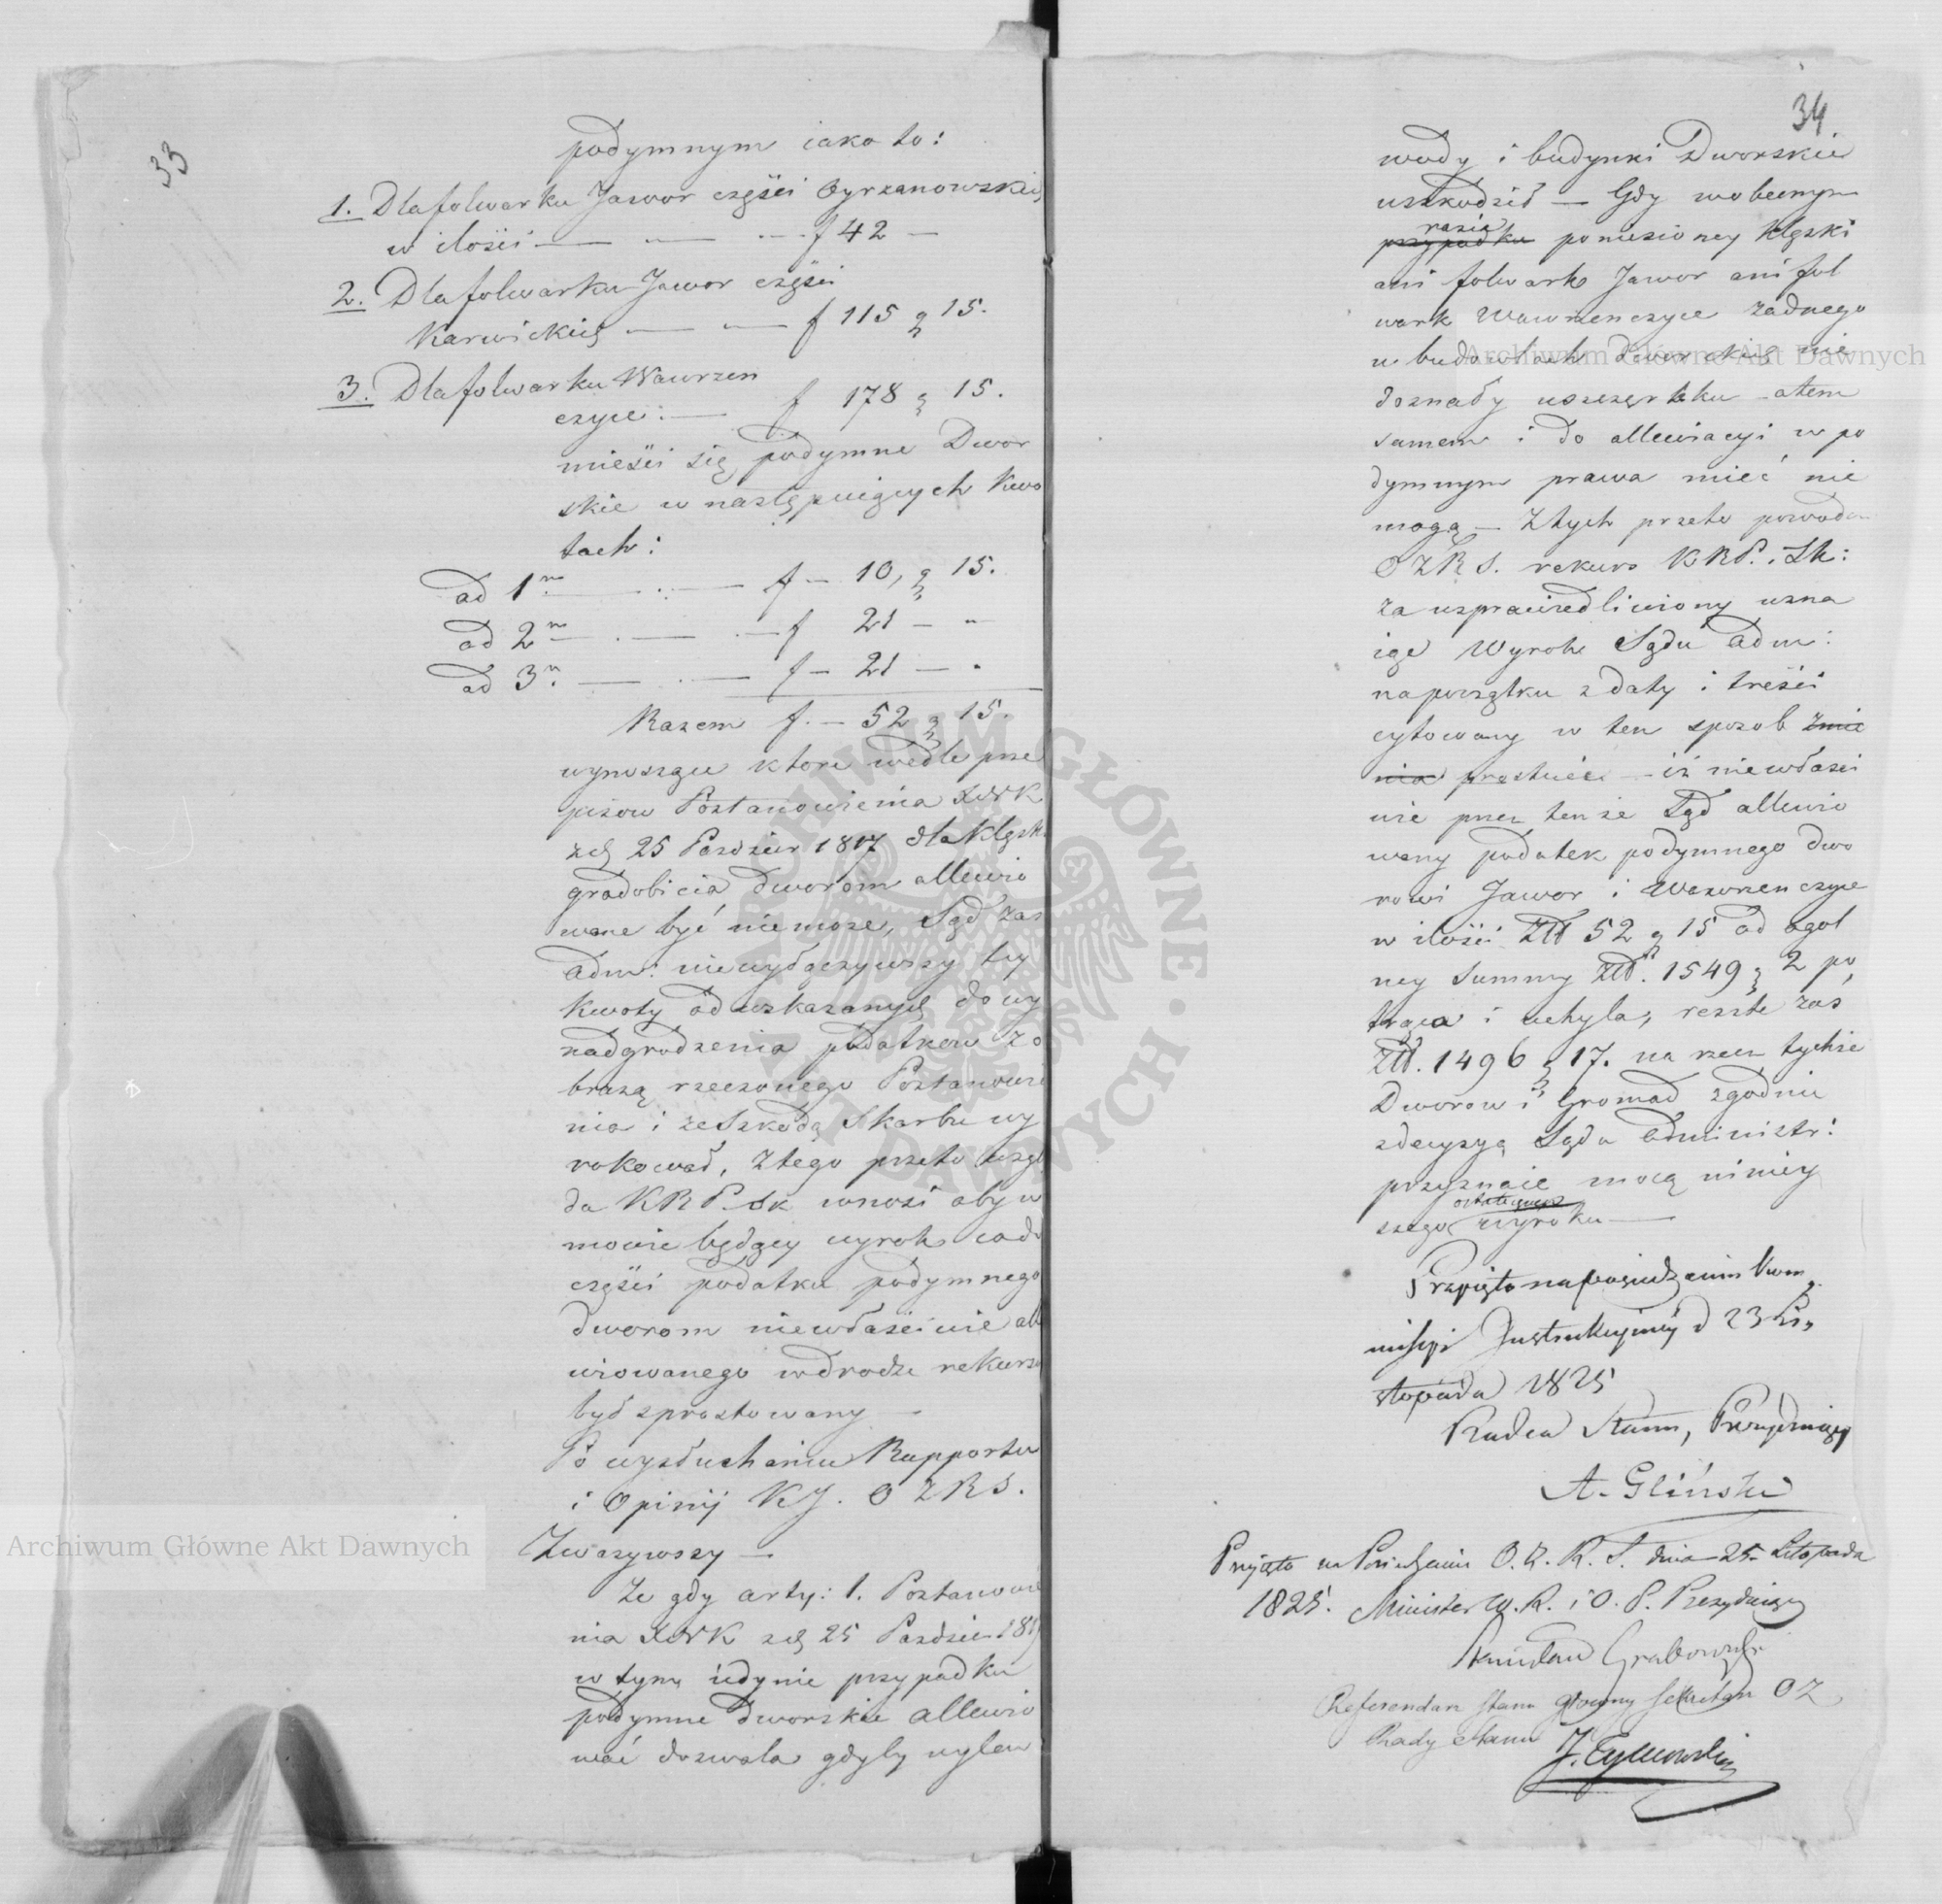 33
podymnym iako to:
1. Dla folwarku Jawor części Cyrzanowskiej
w ilości — — — f 42 —
2. Dla folwarku Jawor części
Karwickiej — — f 115 g 15.
3. Dla folwarku Wawrzen
czyce: — f 178 g 15.
mieści się podymne Dwor
skie w następuiących kwo
tach:
ad 1m — f — 10, g 15.
ad 2m — f 21 — "
ad 3m — f — 21 — "
Razem f. — 52 g 15.
wynoszące które wedle prze
pisow Postanowienia XNK
z dn 25 Paździer 1817 dla klęsk
gradobicia dworom allewio
wane być niemoże, Sąd zaś
Adm: niewyłączywszy tey
kwoty od wskazanych do wy
nadgrodzenia podatkow z o
brazą rzeczonego Postanowie
nia i ze szkodą Skarbu wy
rokował, Z tego przeto wzglę
du KRP.Sk wnosi aby w
mowie będący wyrok co do
części podatku podymnego
dworom niewłaściwie alle
wiowanego w drodze rekursu
był sprostowany —
Po wysłuchaniu Rapportu
i Opinij KJ. O Z R S.
Zważywszy —
Że gdy arty: 1. Postanowie
nia XNK z dn 25 Paździer 181
w tym iedynie przypadku
podymne dworskie allewio
wać dozwala gdyby wylew
34
wody i budynki Dworskie
uszkodził — Gdy w obecnym
razie
przypadku poniesioney klęski
ani folwark Jawor ani fol
wark Wawrzenczyce żadnego
w budowlach dworskich nie
doznały uszczerbku – a tem
samem i do allewiacyi w po
dymnym prawa mieć nie
mogą — Z tych przeto powodow
O Z R S. rekurs K R P. Sk:
za usprawiedliwiony uzna
iąc Wyrok Sądu Adm:
na początku z daty i treści
cytowany w ten sposob zmie
nia prostuie — iż niewłaści
wie przez tenże Sąd allewio
wany podatek podymnego dwo
rowi Jawor i Wawrzenczyce
w ilości Złł 52 g 15 od ogol
ney Summy Złł. 1549 g 2 po
trąca i uchyla, resztę zaś
Złł. 1496 g 17. na rzecz tychże
Dworow i Gromad zgodnie
z decyzyą Sądu Administr:
przyznaie mocą niniey
ostatecznego
szego wyroku —
Przyięto na posiedzeniu Kom
missyi Instrukcyiney d 23 Li
stopada 1825
Radca Stanu, Prezyduiący
A. Gliński
Przyięto na Posiedzeniu O. Z. R. S. dnia 25 Listopada
1825. Minister W. R. i O. P. Prezyduiący
Stanisław Grabowski
Referendarz Stanu Głowny Sekretarz O Z
Rady Stanu J. Tymowski
Archiwum Główne Akt Dawnych
Archiwum Główne Akt Dawnych
ARCHIWUM GŁÓWNE AKT DAWNYCH